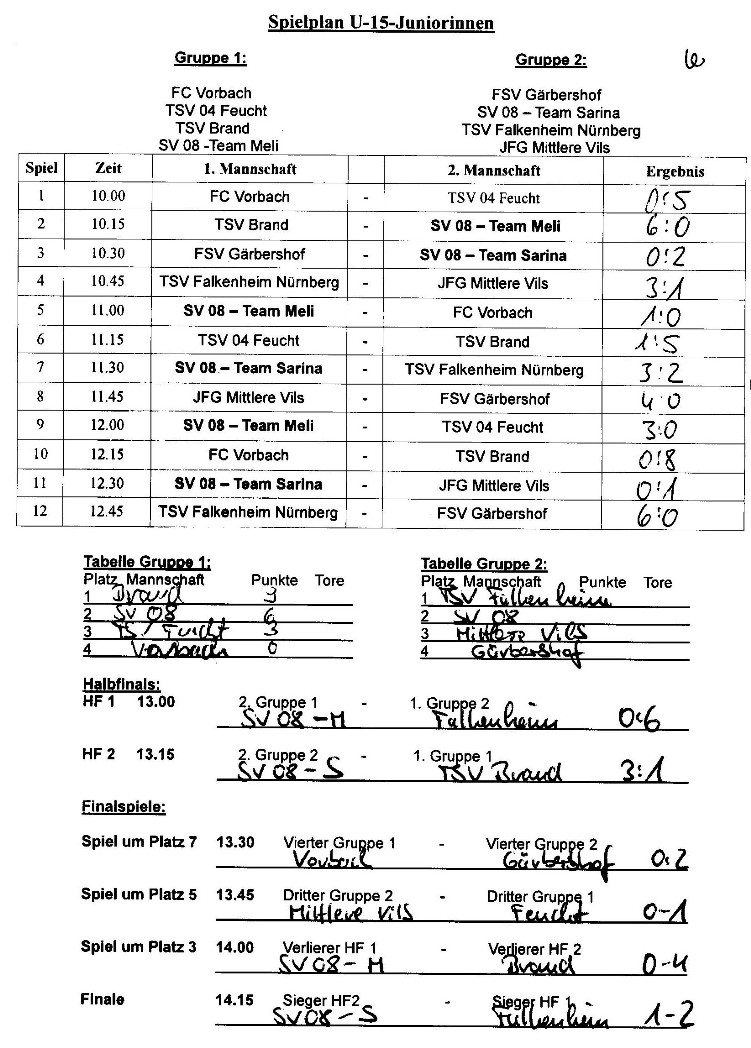 Spielplan U-15-Juniorinnen
Gruppe 1: Gruppe 2:
FC Vorbach FSV Gärbershof
TSV 04 Feucht SV 08 – Team Sarina
TSV Brand TSV Falkenheim Nürnberg
SV 08 -Team Meli JFG Mittlere Vils
Spiel Zeit 1. Mannschaft 2. Mannschaft Ergebnis
1 10.00 FC Vorbach - TSV 04 Feucht 0:5
2 10.15 TSV Brand - SV 08 – Team Meli 6:0
3 10.30 FSV Gärbershof - SV 08 – Team Sarina 0:2
4 10.45 TSV Falkenheim Nürnberg - JFG Mittlere Vils 3:1
5 11.00 SV 08 – Team Meli - FC Vorbach 1:0
6 11.15 TSV 04 Feucht - TSV Brand 1:5
7 11.30 SV 08 – Team Sarina - TSV Falkenheim Nürnberg 3:2
8 11.45 JFG Mittlere Vils - FSV Gärbershof 4:0
9 12.00 SV 08 – Team Meli - TSV 04 Feucht 3:0
10 12.15 FC Vorbach - TSV Brand 0:8
11 12.30 SV 08 – Team Sarina - JFG Mittlere Vils 0:1
12 12.45 TSV Falkenheim Nürnberg - FSV Gärbershof 6:0
Tabelle Gruppe 1: Tabelle Gruppe 2:
Platz Mannschaft Punkte Tore Platz Mannschaft Punkte Tore
1 Brand 1 TSV Falkenheim
2 SV 08 6 2 SV 08
3 TSV Feucht 3 3 Mittlere Vils
4 Vorbach 0 4 Gärbershof
Halbfinals:
HF 1 13.00 2. Gruppe 1 - 1. Gruppe 2
SV 08 - M Falkenheim 0:6
HF 2 13.15 2. Gruppe 2 - 1. Gruppe 1
SV 08 - S TSV Brand 3:1
Finalspiele:
Spiel um Platz 7 13.30 Vierter Gruppe 1 - Vierter Gruppe 2
Vorbach Gärbershof 0:2
Spiel um Platz 5 13.45 Dritter Gruppe 2 - Dritter Gruppe 1
Mittlere Vils Feucht 0-1
Spiel um Platz 3 14.00 Verlierer HF 1 - Verlierer HF 2
SV 08 - M Brand 0-4
Finale 14.15 Sieger HF2 - Sieger HF 1
SV 08 - S Falkenheim 1-2